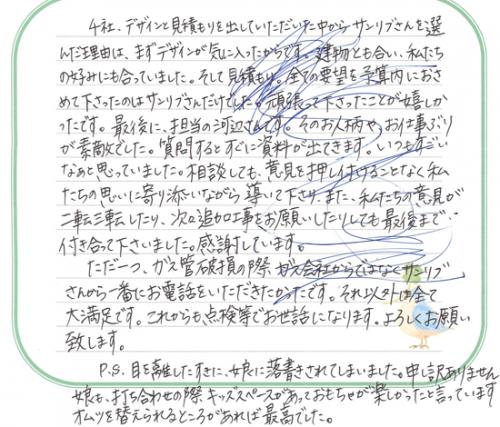 4社、デザインと見積もりを出していただいた中からサンリブさんを選
んだ理由は、まずデザインが気に入ったからです。建物とも合い、私たち
の好みにも合っていました。そして見積もり。全ての要望を予算内におさ
めて下さったのはサンリブさんだけでした。頑張って下さったことが嬉しか
ったです。最後に、担当の河辺さんです。そのお人柄や、お仕事ぶり
が素敵でした。質問するとすぐに資料が出てきます。いつもすごい
なあと思っていました。相談しても、意見を押し付けることなく私
たちの思いに寄り添いながら導いて下り、また、私たちの意見が
二転三転したり、次々追加工事をお願いしたりしても最後まで
付き合って下さいました。感謝しています。
ただ一つ、ガス管破損の際、ガス会社からではなくサンリブ
さんから一番にお電話をいただきたかったです。それ以外は全て
大満足です。これからも点検等でお世話になります。よろしくお願い
致します。
P.S. 目を離したすきに、娘に落書きされてしまいました。申し訳ありません
娘も、打ち合わせの際キッズスペースがあっておもちゃが楽しかったと言っています
オムツを替えられるところがあれば最高でした。